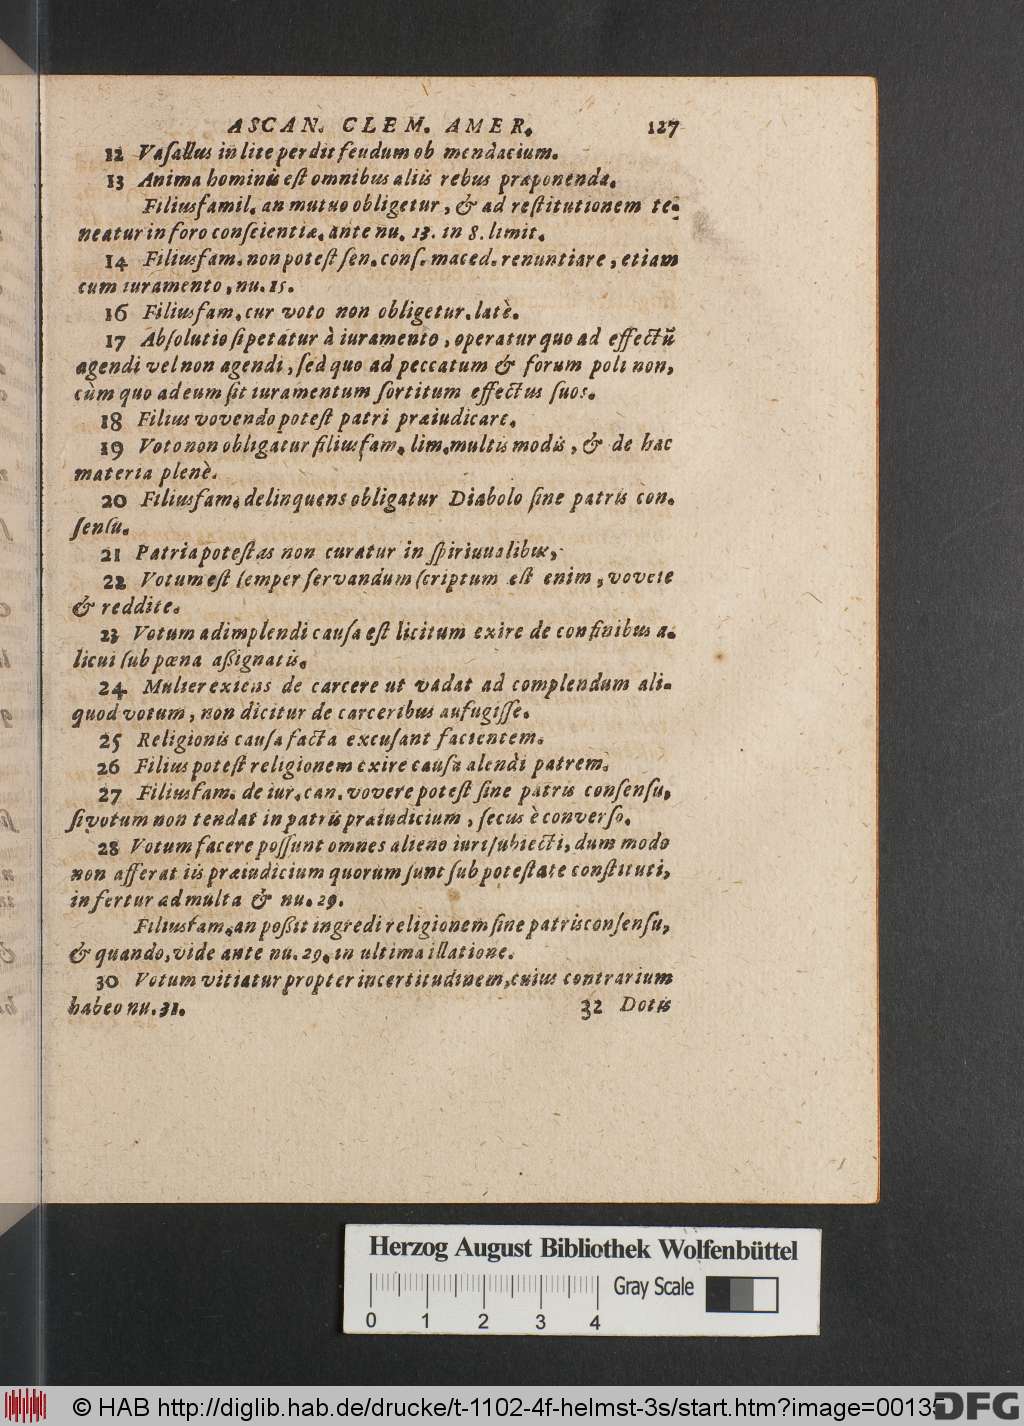 ASCAN. CLEM. AMER. 127
12 Vaſallus in lite perdit feudum ob mendacium.
13 Anima hominis eſt omnibus aliis rebus præponenda.
Filiusfamil. an mutuo obligetur, & ad reſtitutionem te-
neatur in foro conſcientiæ. ante nu. 13. in 8. limit.
14 Filiusfam. non poteſt ſen. conſ. maced. renuntiare, etiam
cum iuramento, nu. 15.
16 Filiusfam. cur voto non obligetur. latè.
17 Abſolutio ſi petatur à iuramento, operatur quo ad effectũ
agendi vel non agendi, ſed quo ad peccatum & forum poli non,
cùm quo ad eum ſit iuramentum ſortitum effectus ſuos.
18 Filius vovendo poteſt patri præiudicare.
19 Voto non obligatur filiusfam. lim. multis modis, & de hac
materia plenè.
20 Filiusfam. delinquens obligatur Diabolo ſine patris con-
ſenſu.
21 Patria poteſtas non curatur in ſpiritualibus,
22 Votum eſt ſemper ſervandum ſcriptum eſt enim, vovete
& reddite.
23 Votum adimplendi cauſa eſt licitum exire de confinibus a-
licui ſub pœna aſſignatis.
24 Mulier exiens de carcere ut vadat ad complendum ali-
quod votum, non dicitur de carceribus aufugiſſe.
25 Religionis cauſa facta excuſant facientem.
26 Filius poteſt religionem exire cauſa alendi patrem.
27 Filiusfam. de iur. can. vovere poteſt ſine patris conſenſu,
ſi votum non tendat in patris præiudicium, ſecus è converſo.
28 Votum facere poſſunt omnes alieno iuri ſubiecti, dum modo
non afferat iis præiudicium quorum ſunt ſub poteſtate conſtituti,
infertur ad multa & nu. 29.
Filiusfam. an poſſit ingredi religionem ſine patris conſenſu,
& quando, vide ante nu. 29. in ultima illatione.
30 Votum vitiatur propter incertitudinem, cuius contrarium
habeo nu. 31. 32 Dotis
Herzog August Bibliothek Wolfenbüttel
Gray Scale
0 1 2 3 4
© HAB http://diglib.hab.de/drucke/t-1102-4f-helmst-3s/start.htm?image=00135
DFG